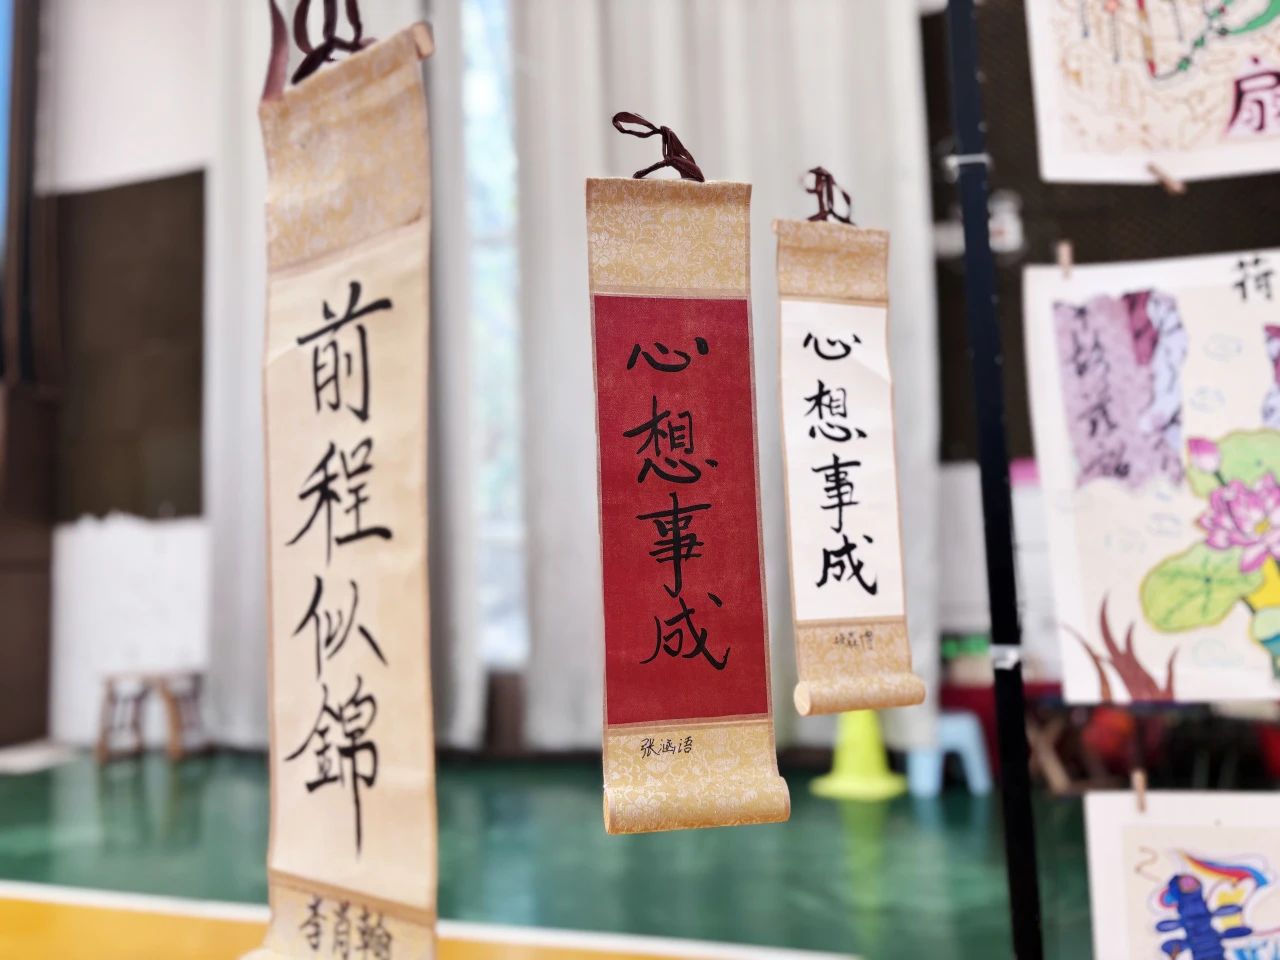 前程似錦
心想事成
张涵语
心想事成
扇
荷